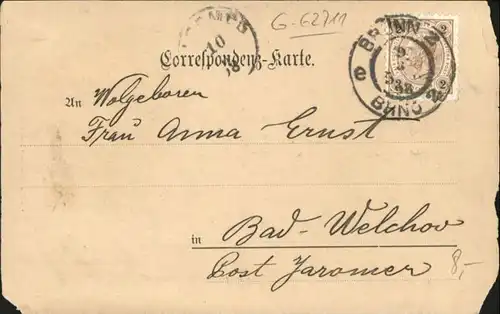 G-62711
10
Correspondenz-Karte.
BRÜNN
BRNO
2
An Wolgeboren
Frau Anna Ernst
in Bad-Welchov
Post Jaromer
8,-